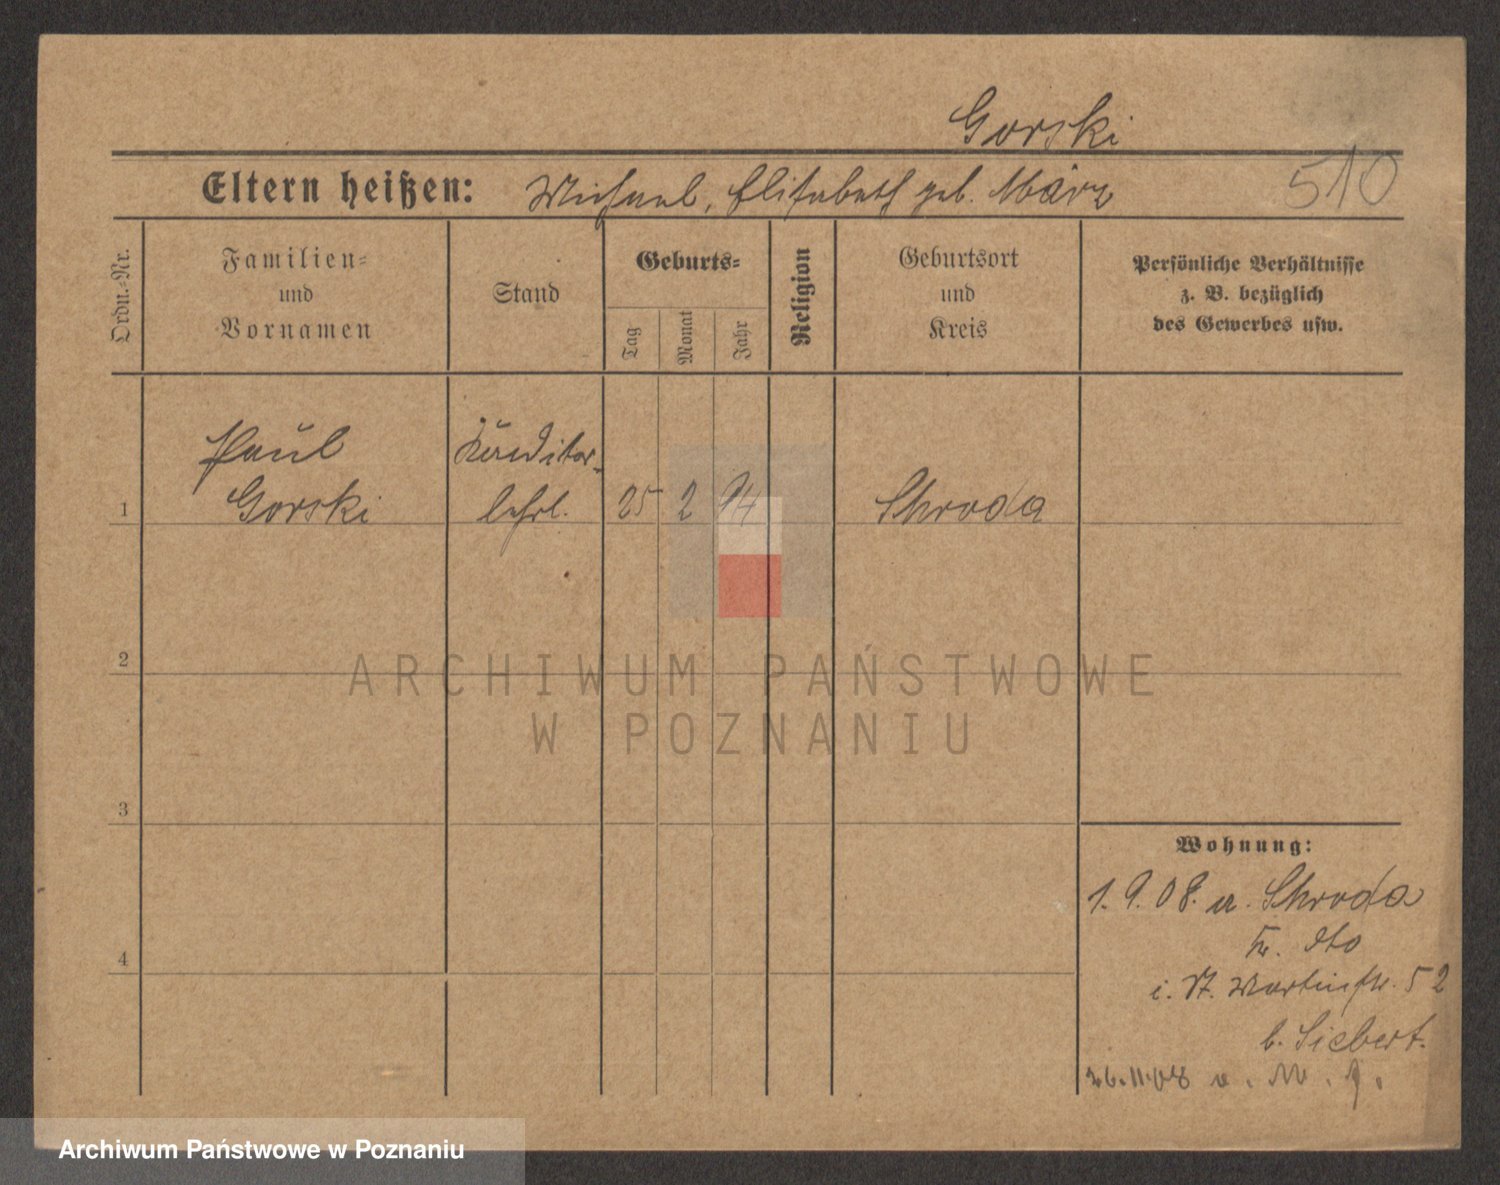 Gorski
Eltern heißen: Michael, Elisabeth geb. März
510
Ordn.-Nr.
Familien-
und
Vornamen
Stand
Geburts-
Tag
Monat
Jahr
Religion
Geburtsort
und
Kreis
Persönliche Verhältnisse
z. B. bezüglich
des Gewerbes usw.
Paul
Gorski
Konditor-
lehrl.
1
25 2 94
Schroda
2
3
4
Wohnung:
1. 9. 08. a. Schroda
dto
i. St. Martinstr. 52
b. Siebert.
26.11.08
ARCHIWUM PAŃSTWOWE
W POZNANIU
Archiwum Państwowe w Poznaniu